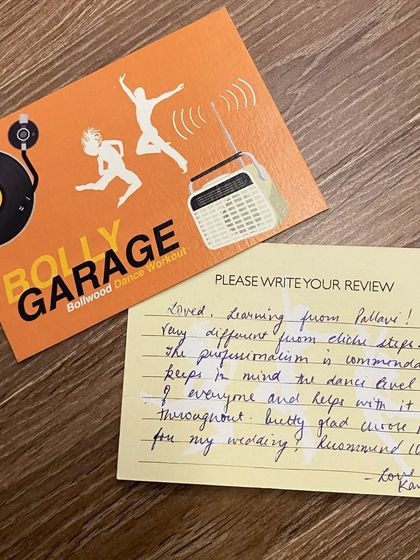 BOLLY
GARAGE
Bollwood Dance Workout
PLEASE WRITE YOUR REVIEW
Loved. Learning from Pallavi!
Very different from cliche steps.
The professionalism is commenda
keeps in mind the dance level
of everyone and helps with it
throughout. Pretty glad choose
for my wedding! Recommend
- Love
Kar